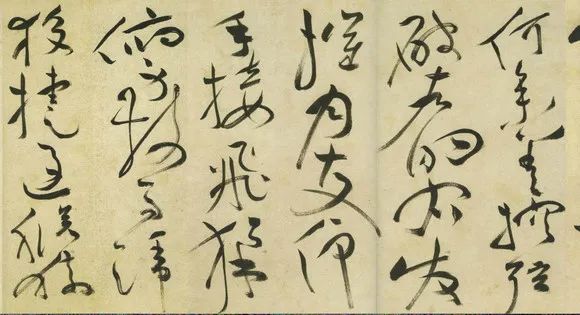 何參差控弦
破左的右發
摧月支仰
手接飛猱
俯身散馬蹄
狡捷過猴猿